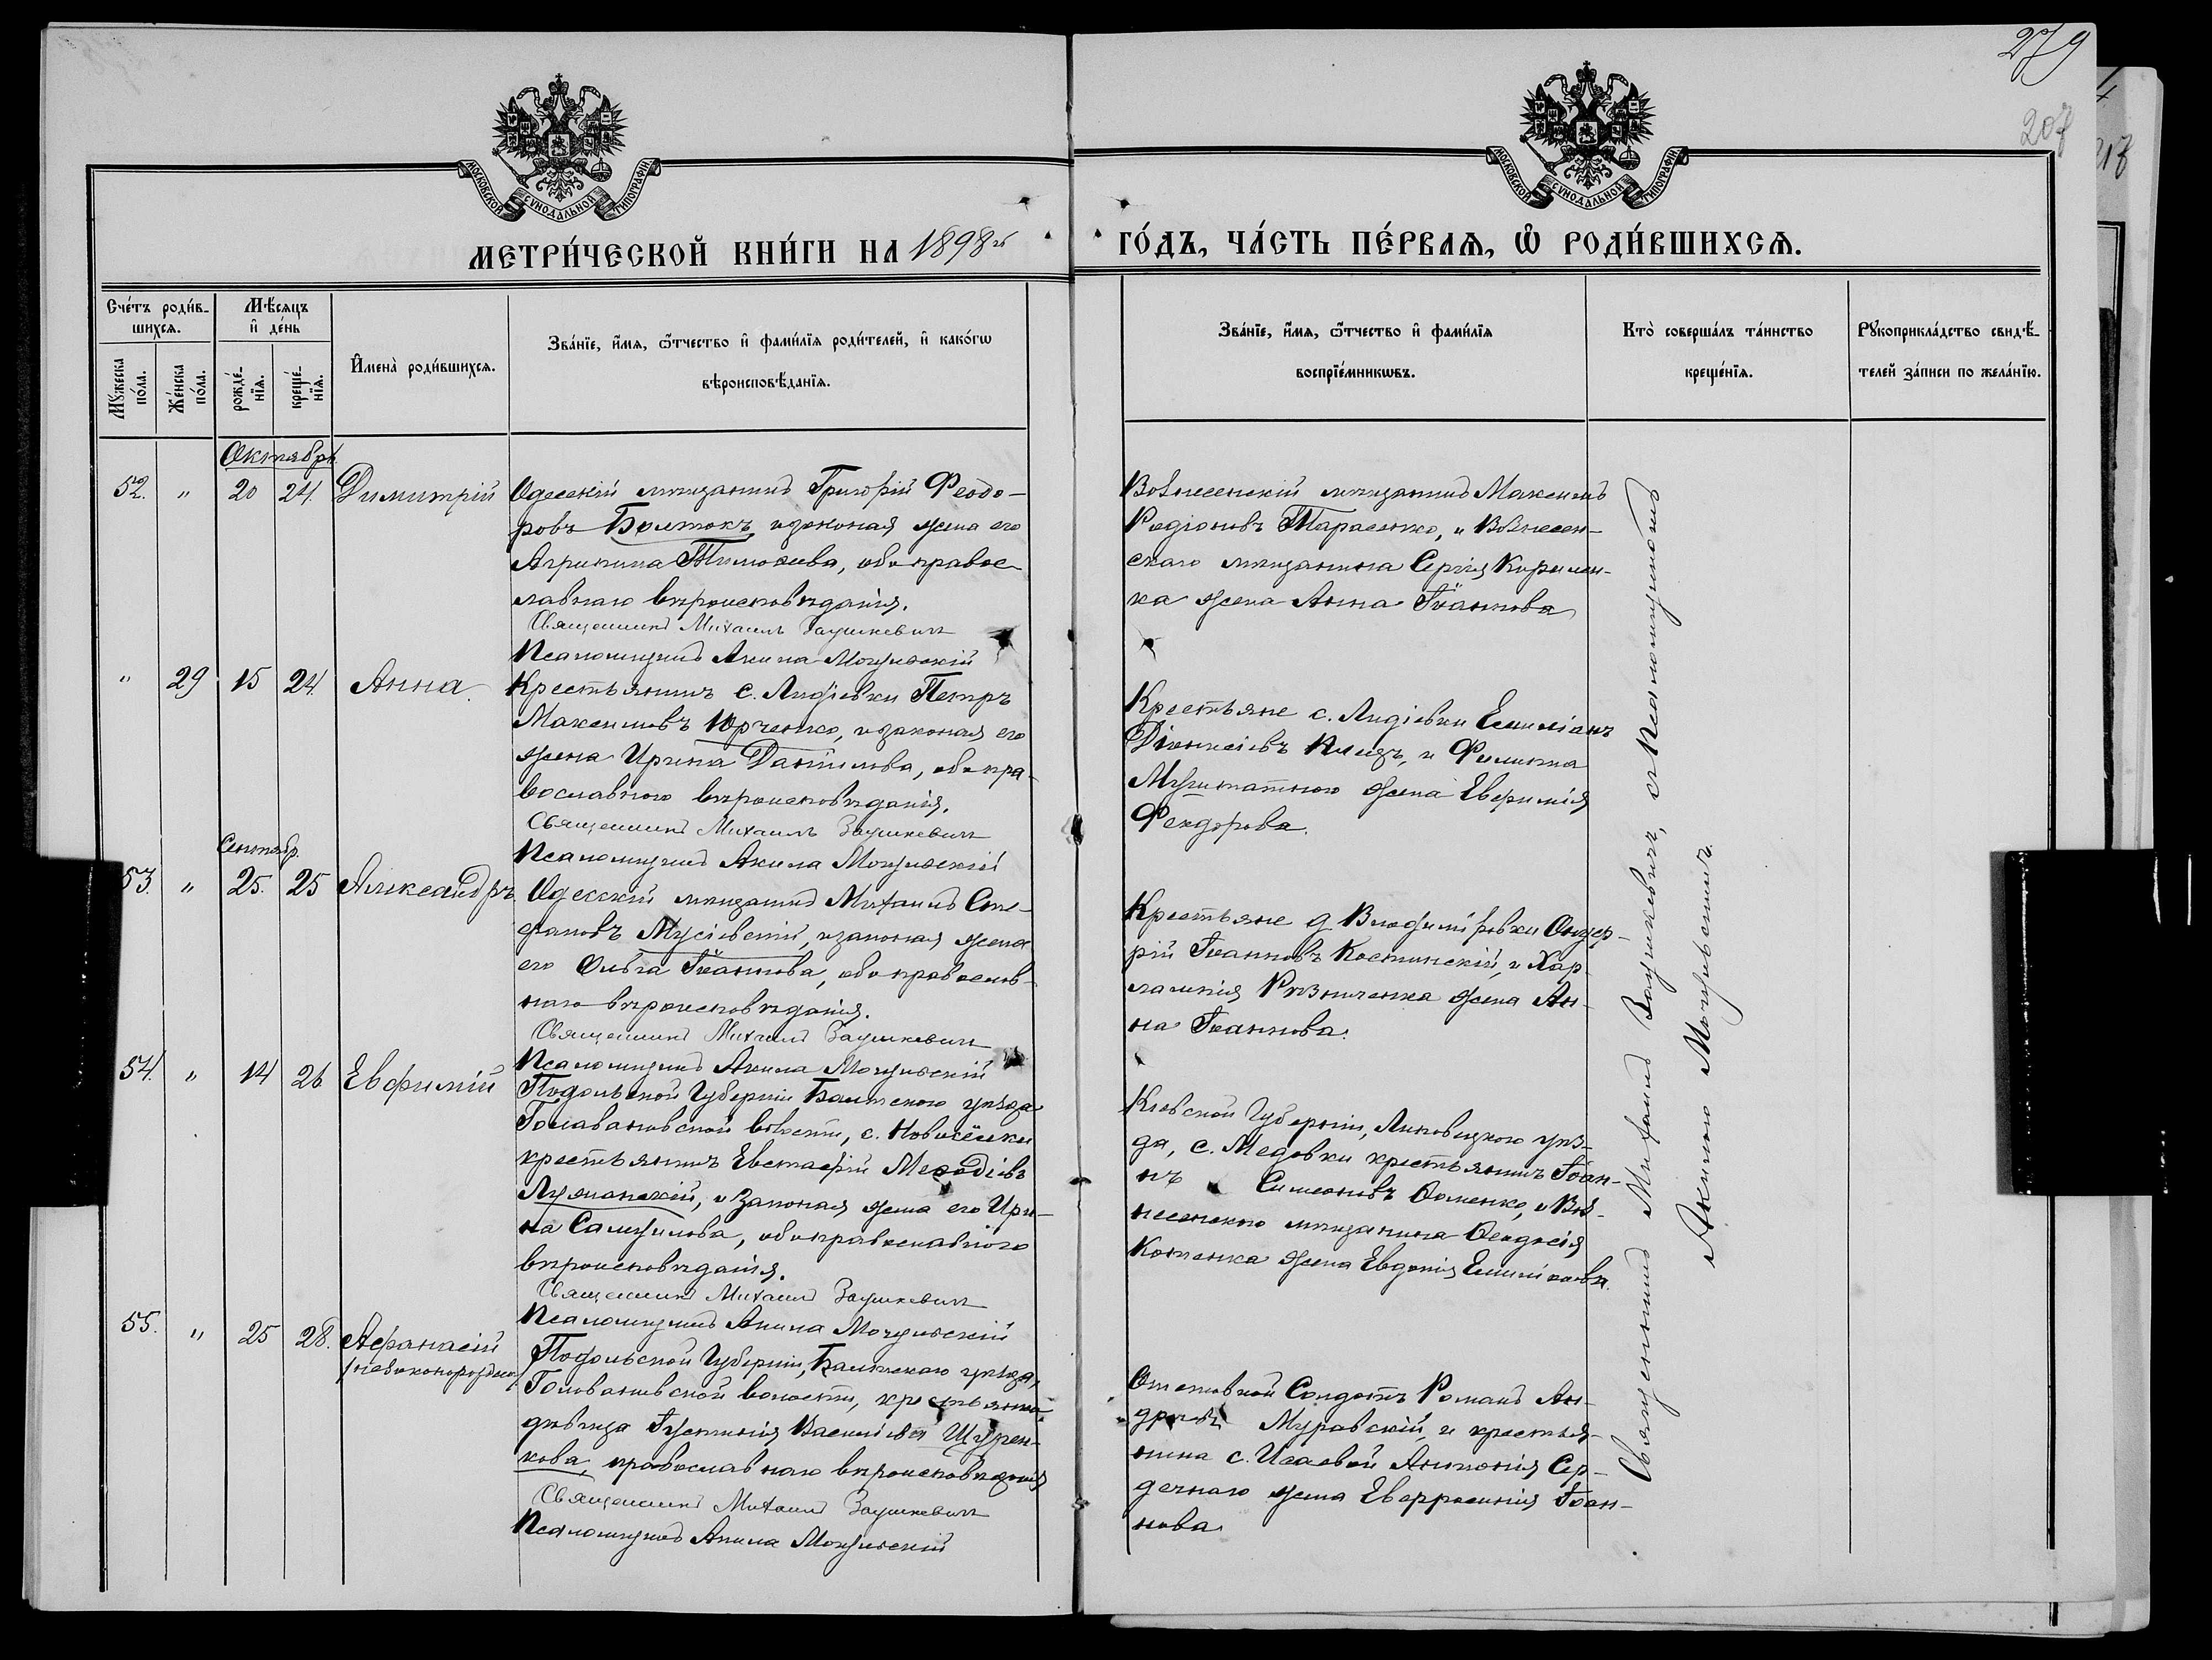 279
207
МОСКОВСКОЙ СѴНОДАЛЬНОЙ ТИПОГРАФІИ
МОСКОВСКОЙ СѴНОДАЛЬНОЙ ТИПОГРАФІИ
МЕТРИ́ЧЕСКОЙ КНИ́ГИ НА 1898й
ГО́ДЪ, ЧА́СТЬ ПЕ́РВАЯ, Ѡ РОДИ́ВШИХСЯ.
Сче́тъ роди́в-
шихся.
Мꙋ́жеска по́ла.
Же́нска по́ла.
Мѣ́сяцъ и҆ де́нь
рожде́-
нїя.
креще́-
нїя.
И҆мена̀ роди́вшихся.
Зва́нїе, и҆́мя, ѻ҆́тчество и҆ фами́лїя роди́телей, и҆ како́гѡ
вѣроисповѣ́данїя.
Зва́нїе, и҆́мя, ѻ҆́тчество и҆ фами́лїя
воспрїе́мникѡвъ.
Кто̀ соверша́лъ та́инство
креще́нїя.
Рꙋкоприкла́дство свидѣ́-
телей за́писи по жела́нїю.
Октябрь
52. " 20 24. Димитрій
Одескій мѣщанинъ Григорій Феодо-
ровъ Болтокъ, и законая жена его
Агрипина Тимофеева, оба правос-
лавнаго вѣроисповѣданія.
Священникъ Михаилъ Заушкевичъ
Псаломщикъ Акила Мочульскій
Вознесенскій мѣщанинъ Максимъ
Родіоновъ Тарасенко, и Вознесен-
скаго мѣщанина Сергія Кирилен-
ка жена Анна Іоаннова
" 29 15 24. Анна
Крестьянинъ с. Лидіевки Петръ
Максимовъ Юрченко, и законая его
жена Ирина Даніилова, оба пра-
вославного вѣроисповѣданія.
Священникъ Михаилъ Заушкевичъ
Псаломщикъ Акила Мочульскій
Крестьяне с. Лидіевки Емиліанъ
Діонисіевъ и Филиппа
жена Евфимія
Феодорова.
Сентябр.
53. " 25. 25 Александръ
Одесскій мѣщанинъ Михаилъ Сте-
фановъ Мусіевскій, и законая жена
его Ольга Іоаннова, оба православ-
наго вѣроисповѣданія.
Священникъ Михаилъ Заушкевичъ
Псаломщикъ Акила Мочульскій
Крестьяне д. Владиміровки
Іоанновъ Костинскій, и Хар-
лампія Рѣзниченка жена Ан-
на Іоаннова.
54. " 14 26 Евфимій
Подольской Губерніи Балтскаго уѣзда
волости, с. Новосёлки
крестьянинъ Евстафій Меѳодіевъ
Лужанскій, и законая жена его Ири-
на Самуилова, оба православного
вѣроисповѣданія.
Священникъ Михаилъ Заушкевичъ
Псаломщикъ Акила Мочульскій
Кіевской Губерніи, Липовецкого уѣз-
да, с. Медовки крестьянинъ Іоан-
нъ Симеоновъ и Воз-
несенского мѣщанина Феодосія
Котенка жена Евдокія
55. " 25 28. Афанасій
/незаконорожден./
Подольской Губерніи, Балтскаго уѣзда,
Голованевской волости, крестьянка
дѣвица Іустинія Василіева Щурен-
кова, православнаго вѣроисповѣданія
Священникъ Михаилъ Заушкевичъ
Псаломщикъ Акила Мочульскій
Отставной Солдатъ Романъ Ан-
дреевъ Муравскій, и крестья-
нина с. Исаевой Антонія Сер-
дечнаго жена Евфросинія Іоан-
нова
Священникъ Михаилъ Заушкевичъ, съ Псаломщикомъ
Акилою Мочульскимъ.